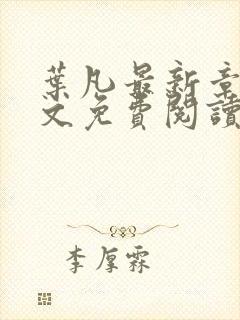 葉凡最新章
文免費閱讀
李厚霖